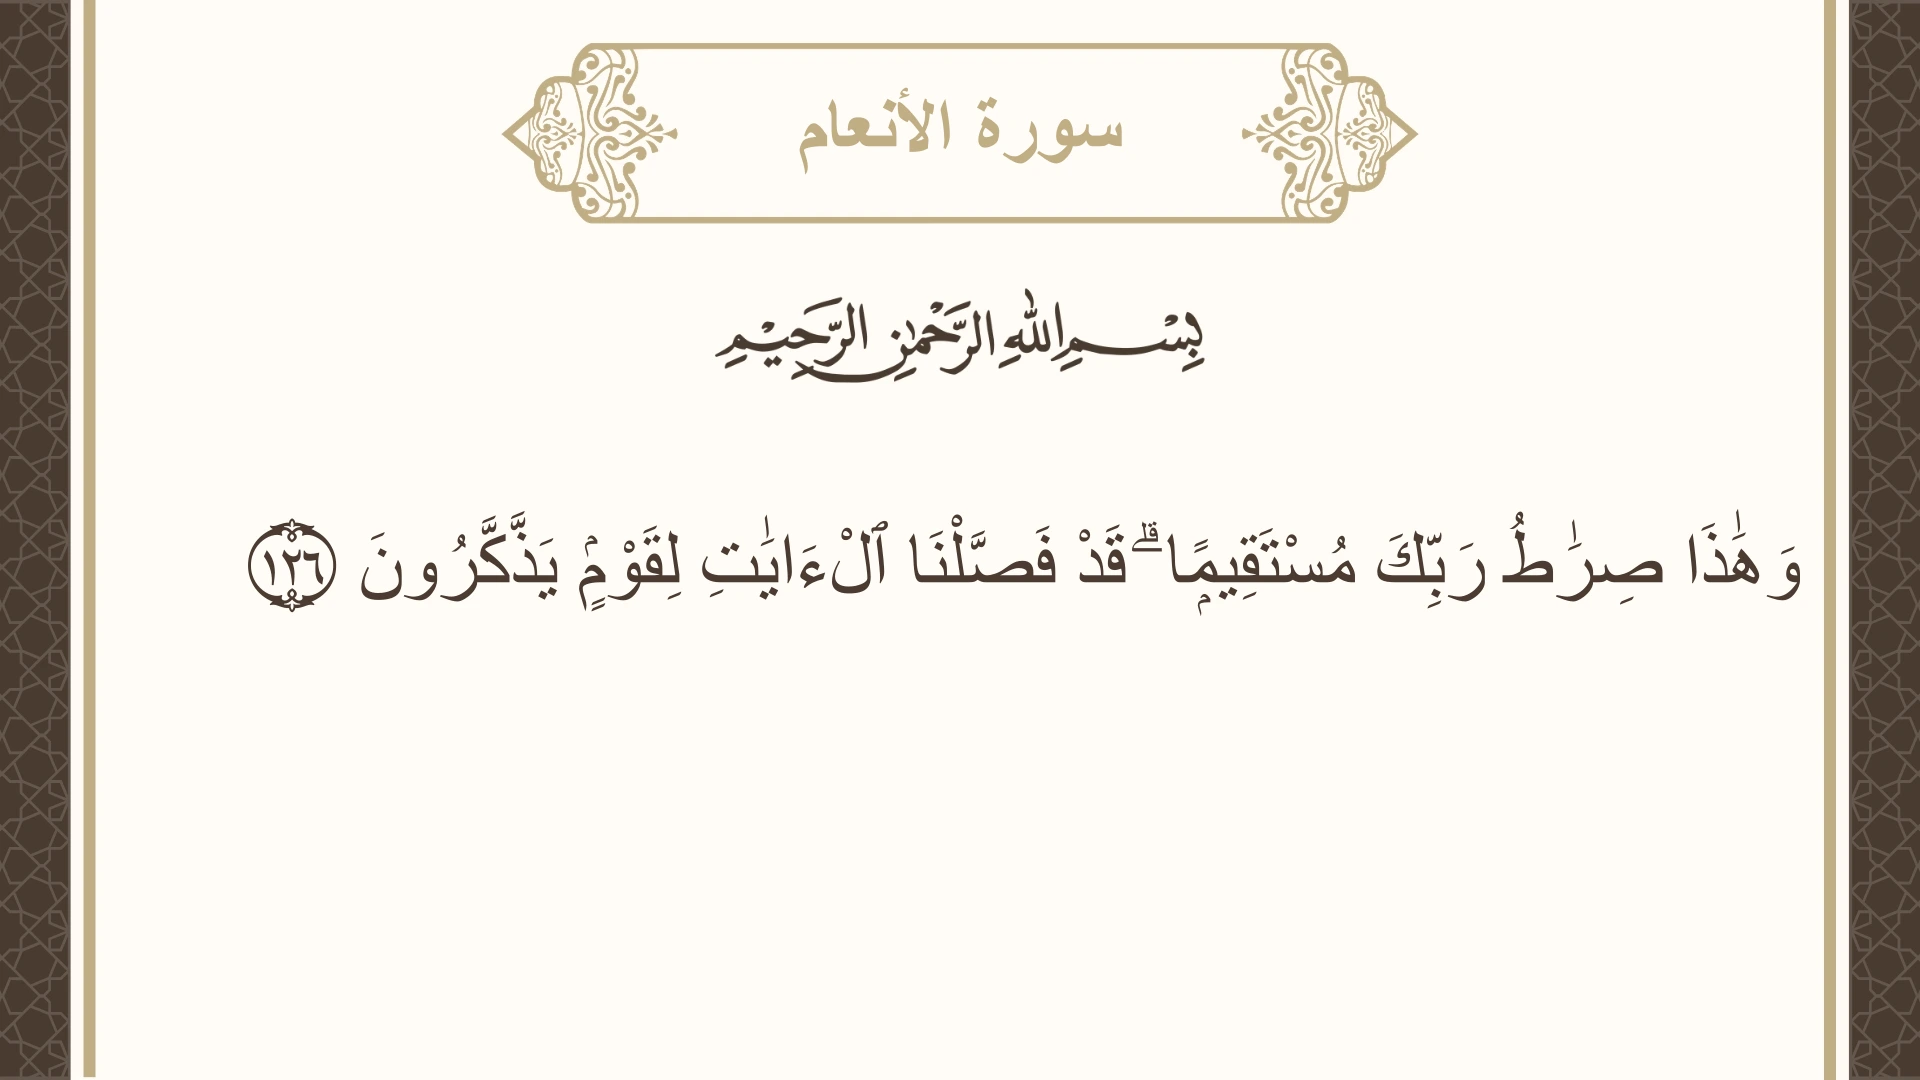 سورة الأنعام
بِسْمِ اللهِ الرَّحْمٰنِ الرَّحِيْمِ
وَهَٰذَا صِرَٰطُ رَبِّكَ مُسْتَقِيمًۭا ۗ قَدْ فَصَّلْنَا ٱلْءَايَٰتِ لِقَوْمٍۢ يَذَّكَّرُونَ ١٢٦